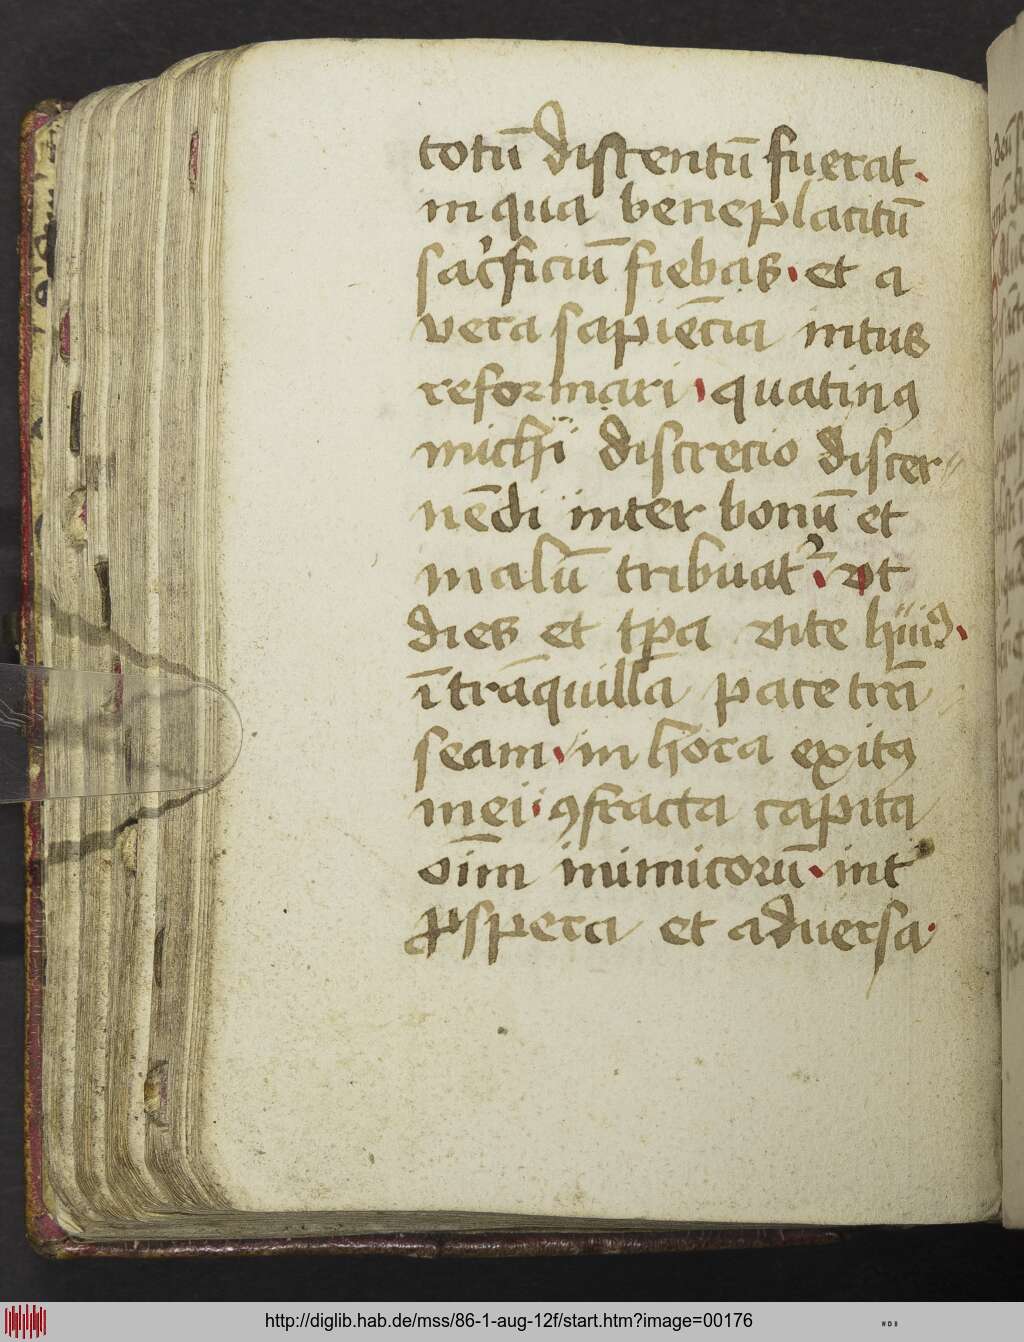 totū distentū fuerat.
in qua beneplacitū
sac̓ficiū fiebas. et a
vera sapiēcia intus
reformari. quatinꝯ
michi discrecio discer
nēdi inter bonū et
malū tribuat᷑. vt
dies et tꝑa vite huiꝯ.
ī trāquilla pace trā
seam. in hora exitꝯ
mei. ꝯfracta capita
oīm inimicorū. int
ꝓspera et aduersa.
http://diglib.hab.de/mss/86-1-aug-12f/start.htm?image=00176